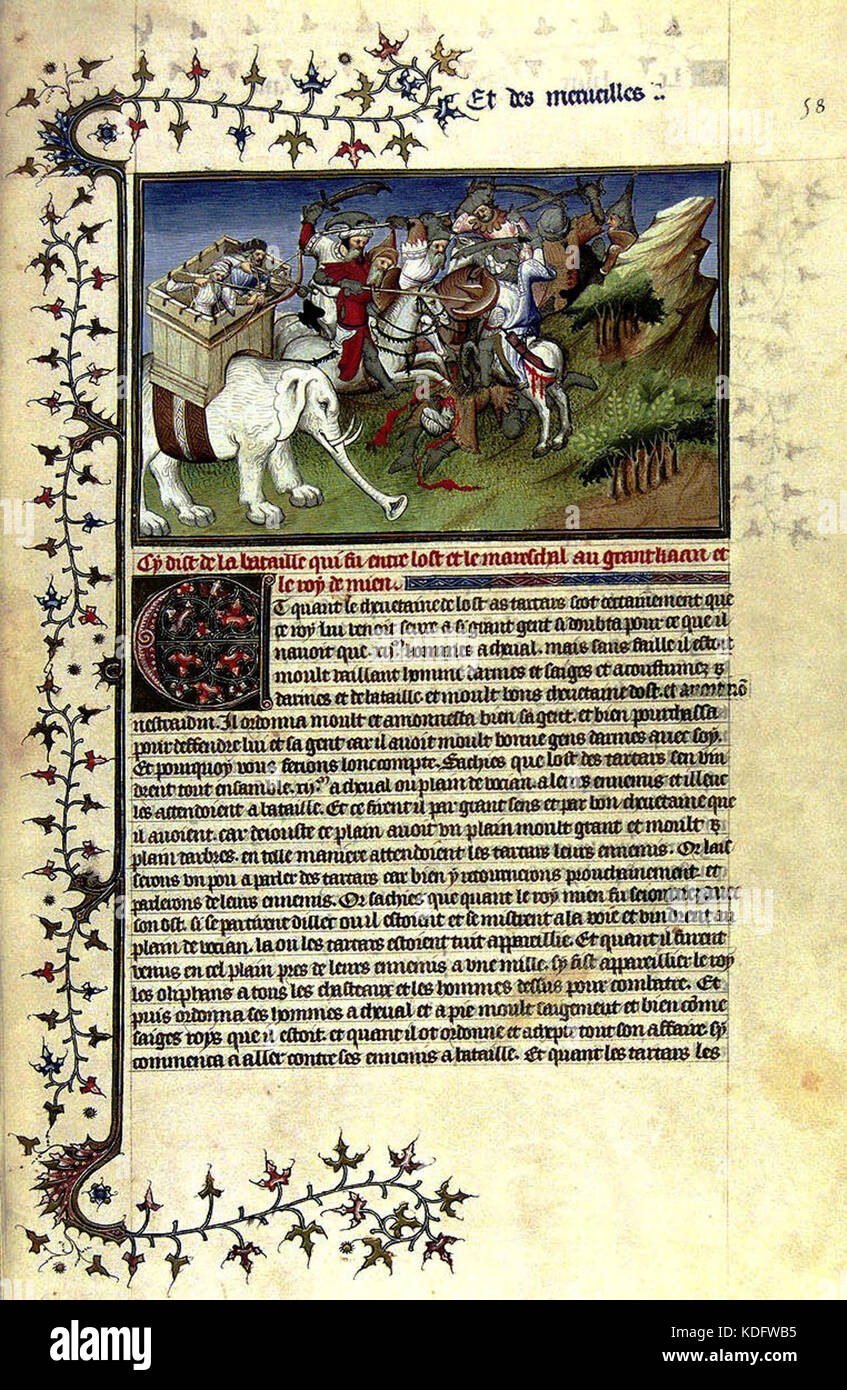 Et des merueilles :
58
Cy dist de la bataille qui fu entre lost et le mareschal au grant kaan et
le roy de mien.
Et quant le cheuetaine de lost as tartars scot certainement que
ce roy lui venoit seure a si grant gent si doubta pour ce que il
nauoit que .xij.m hommes a cheual. mais sans faille il estoit
moult vaillant homme darmes et saiges et acoustumez
darmes et de bataille. et moult bons cheuetaine dost. et auoit nõ
nestraidin. Il ordonna moult et amonnesta bien sa gent. et bien pourchassa
pour deffendre lui et sa gent car il auoit moult bonne gens darmes auec soy.
Et pourquoy vous feroies lonc compte. Sachies que lost des tartars sen vin
drent tout ensamble .xij.m a cheual ou plain de vocian. a leurs ennemis et illeuc
les attendoient a bataille. Et ce firent il par grant sens et par bon cheuetaine que
il auoient. car deiouste ce plain auoit vn plain moult grant et moult
plain darbres. en telle maniere attendoient les tartars leurs ennemis. Or lais
serons vn pou a parler des tartars car bien y retournerons prouchainement. et
parlerons de leurs ennemis. Or sachies que quant le roy mien fu seiournez auec
son ost. si se partirent dillec ou il estoient et se mistrent a la voie et vindrent au
plain de vocian. la ou les tartars estoient tuit appareillie. Et quant il furent
venus en cel plain pres de leurs ennemis a vne mille. sy fist appareillier le roy
les oliphans a tous les chasteaux et les hommes dessus pour combatre. Et
puis ordonna ses hommes a cheual et a pie moult saigement et bien cõme
saiges roys que il estoit. et quant il ot ordonne et acheue tout son affaire sy
commenca a aller contre ses ennemis a bataille. Et quant les tartars les
alamy
Image ID: KDFWB5
www.alamy.com